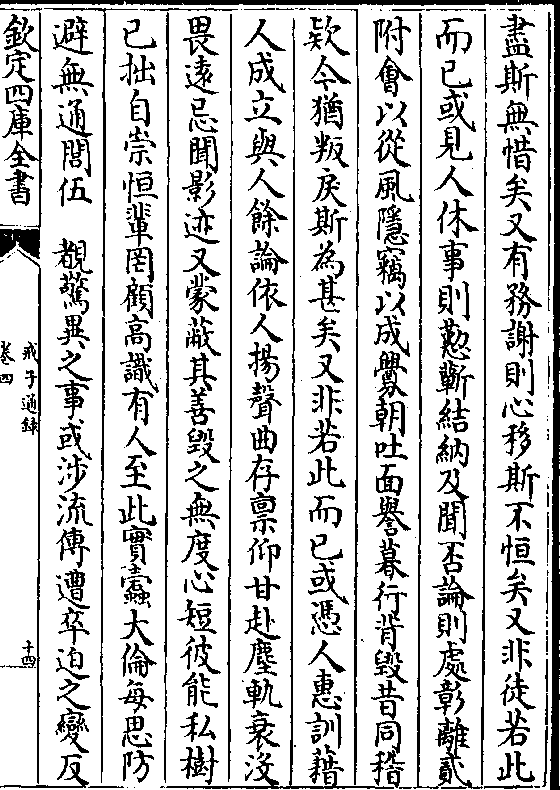 盡斯無惜矣又有務謝則心移斯不恒矣又非徒若此
而已或見人休事則懃蘄結納及聞否論則處彰離貳
附會以從風隱竊以成釁朝吐面譽暮行背毀昔同稽
款今猶叛戾斯為甚矣又非若此而已或憑人惠訓藉
人成立與人餘論依人揚聲曲存稟仰甘赴塵軌衰沒
畏遠忌聞影迹又蒙蔽其善毀之無度心短彼能私樹
已拙自崇恒輩罔顧高識有人至此實蠹大倫每思防
避無通閭伍　覩驚異之事或涉流傳遭卒迫之變反
欽定四庫全書
戒子通錄
卷四
十四